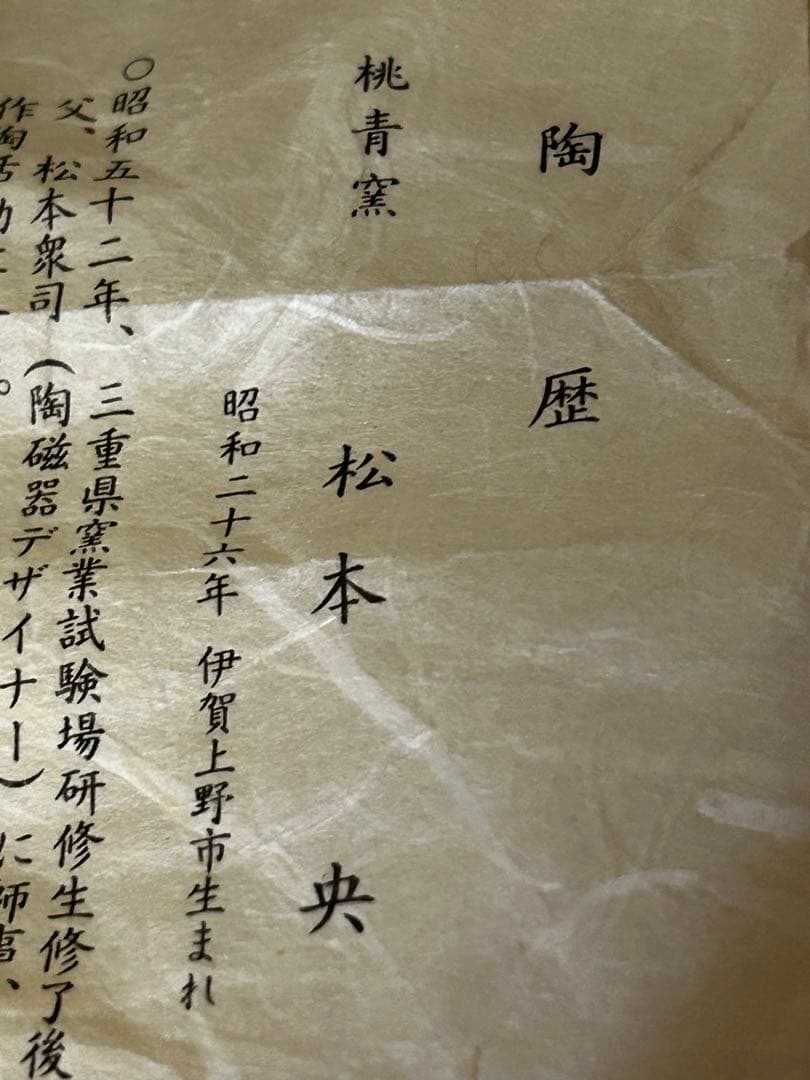 陶歴
桃青窯 松本央
昭和二十六年 伊賀上野市生まれ
○昭和五十二年、三重県窯業試験場研修生修了後
父、松本衆司(陶磁器デザイナー)に師事、
作陶活動